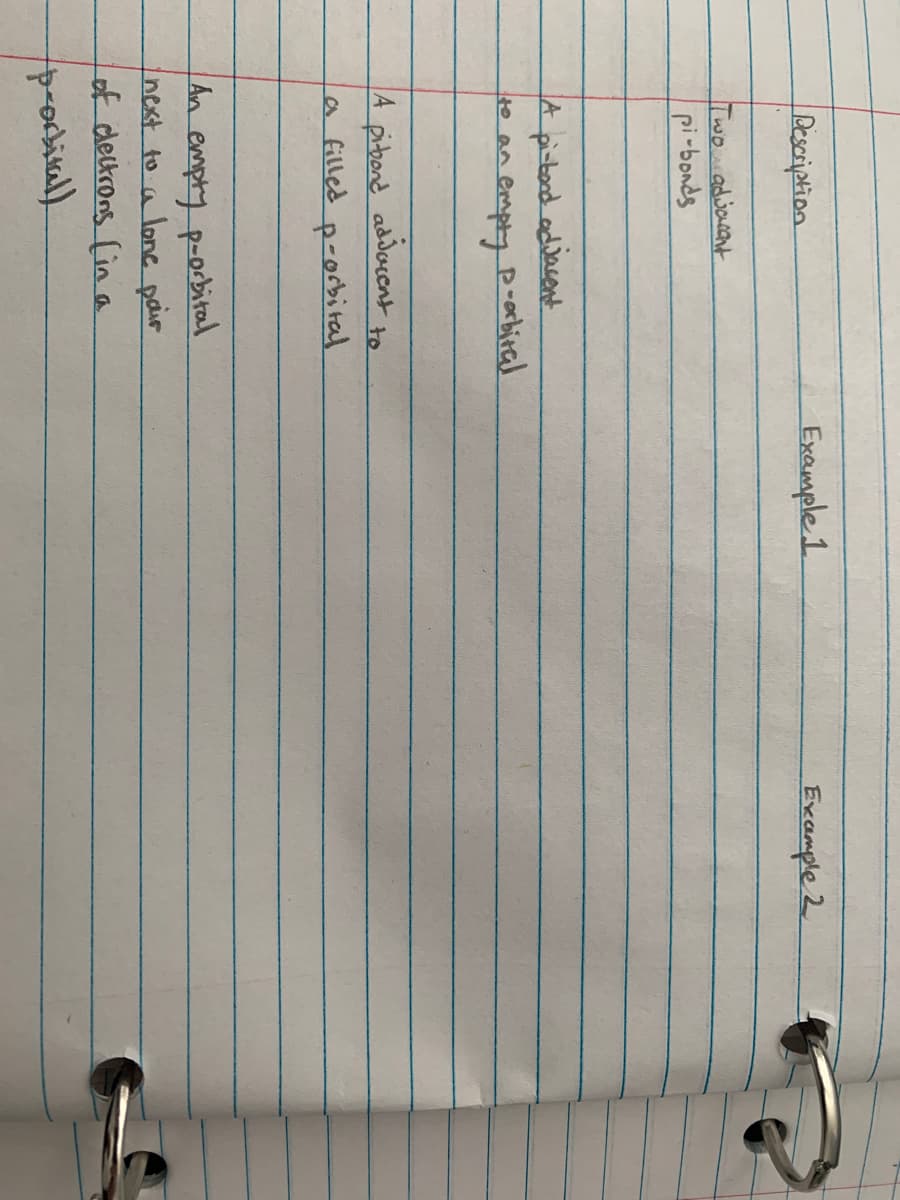 Description Example 1 Example 2
Two adjacent
pi-bonds
A pi-bond adjacent
to an empty p-orbital
A pi-bond adjacent to
a filled p-orbital
An empty p-orbital
next to a lone pair
of electrons (in a
p-orbital)